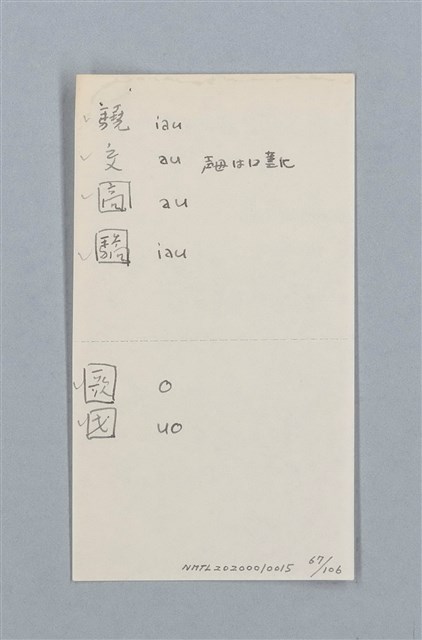 ✓ 驍 iau
✓ 交 au 声母は口蓋化
✓ 高 au
✓ 驕 iau
✓ o
✓ 戈 uo
NMTL20200010015 67/106